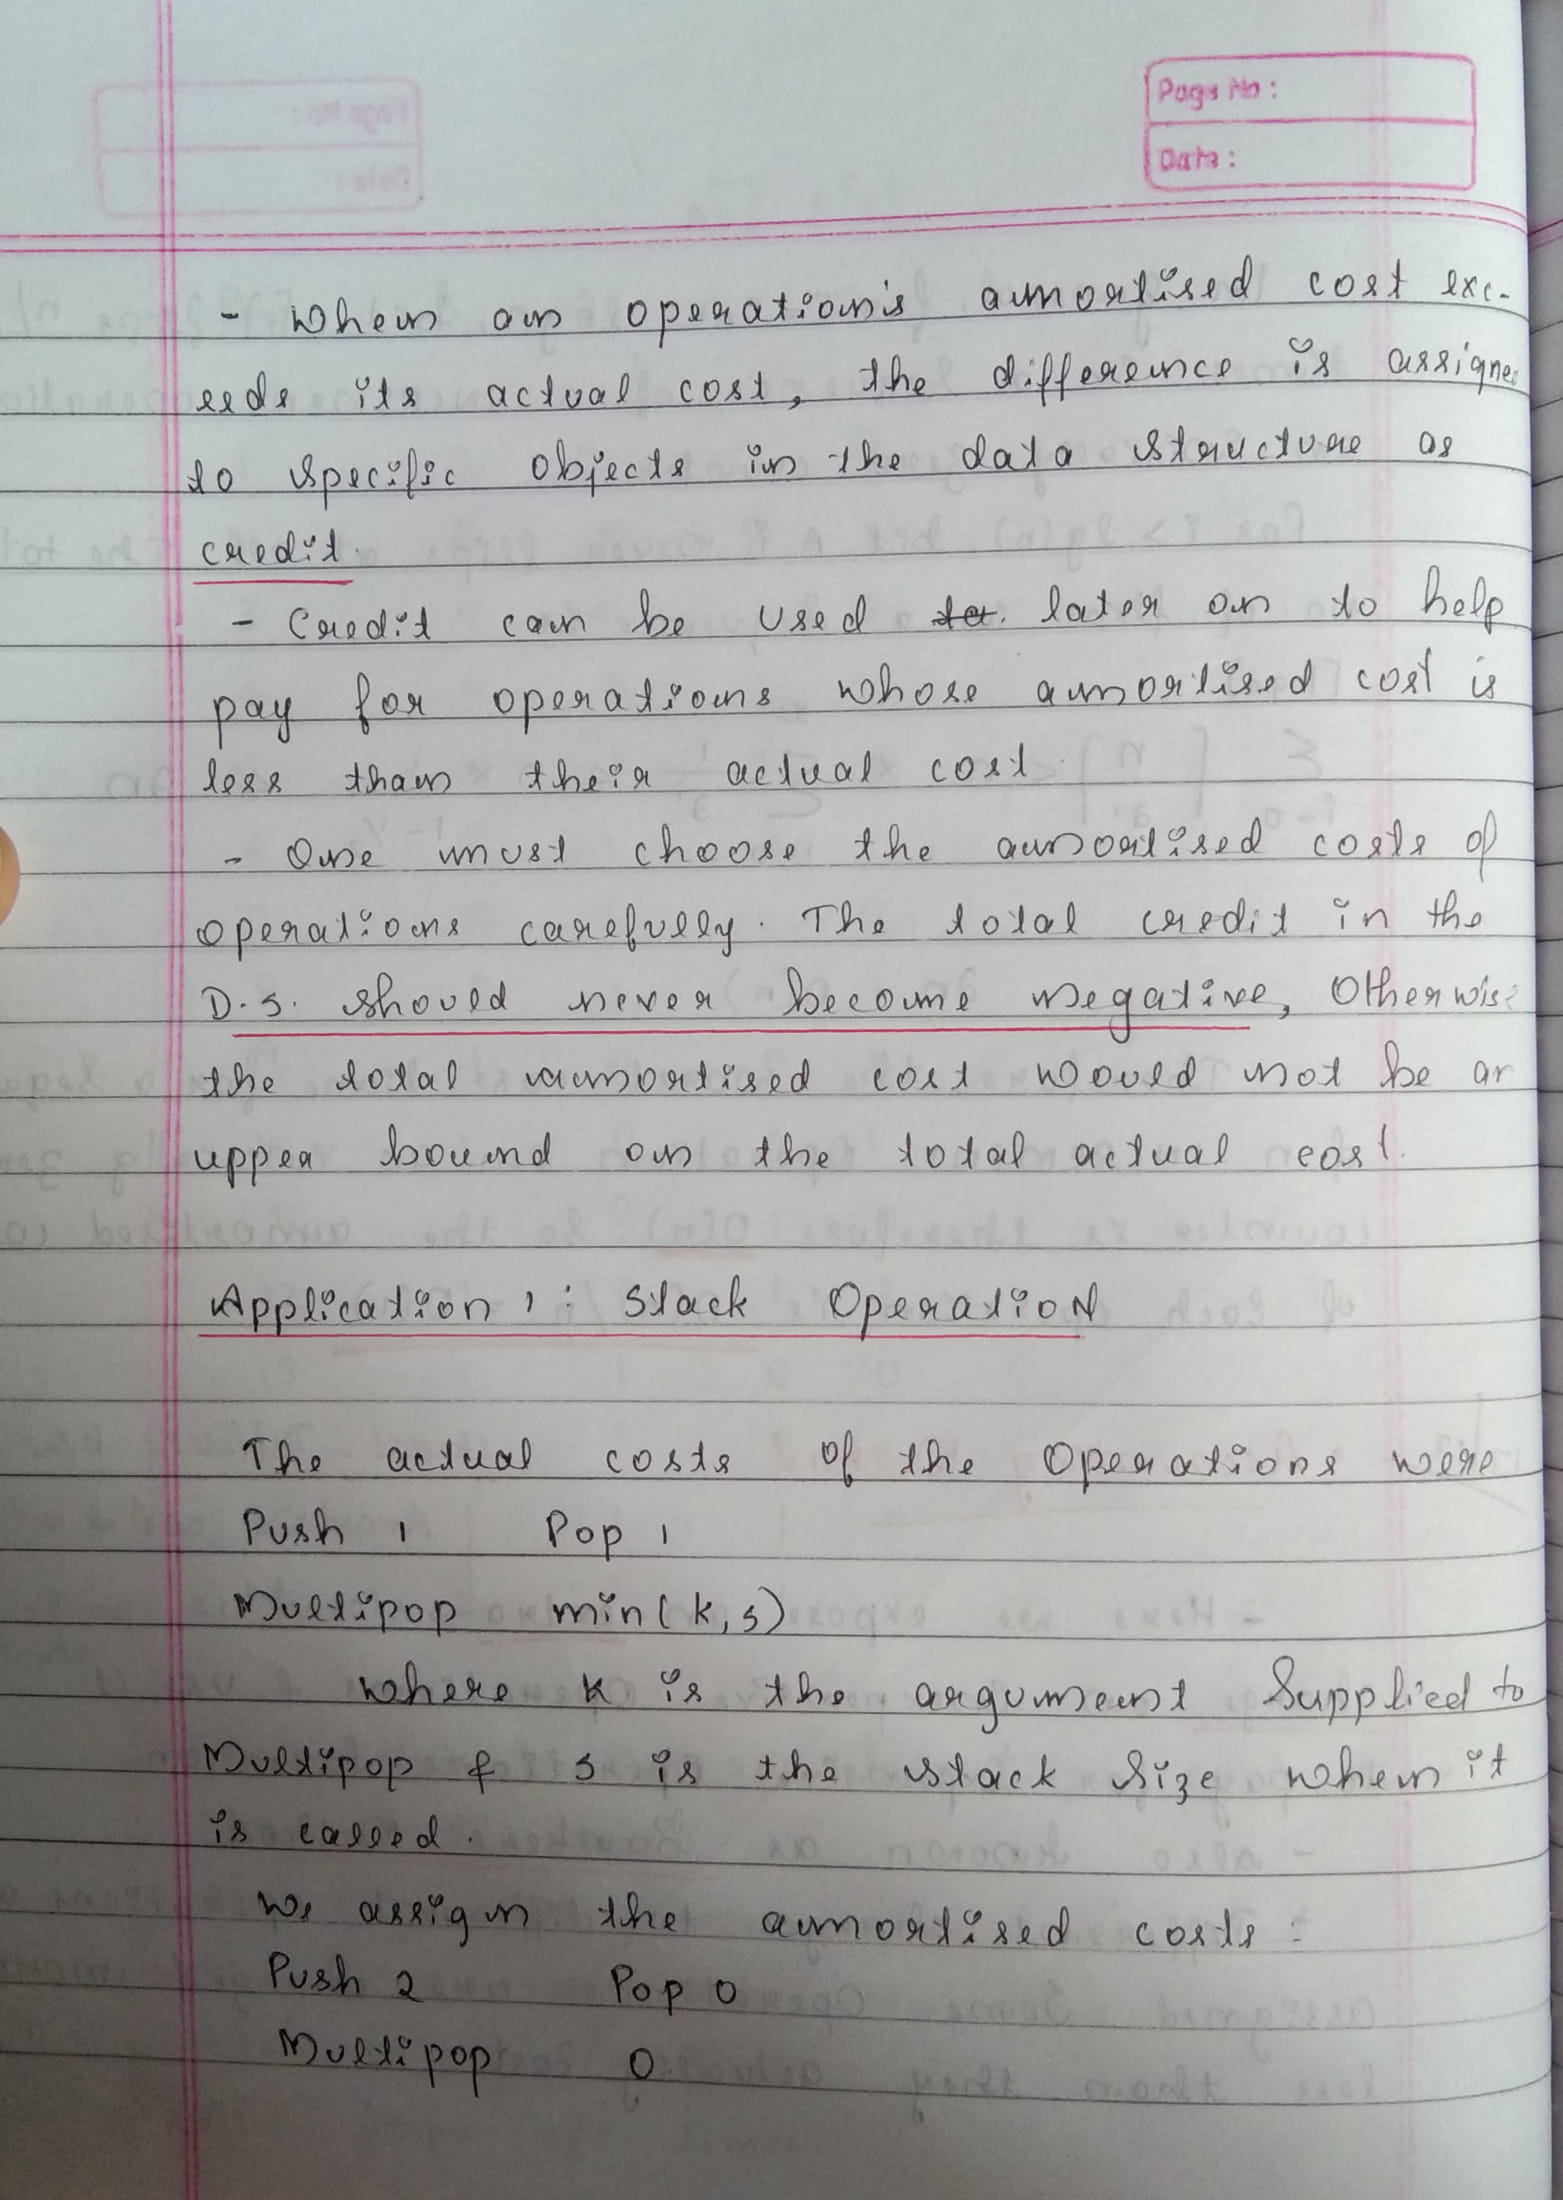 Page No :
Date :
- When an operation's amortised cost exc-
eeds its actual cost, the difference is assigne
to specific objects in the data structure as
credit.
- Credit can be used later on to help
pay for operations whose amortised cost is
less than their actual cost
- One must choose the amortised costs of
operations carefully. The total credit in the
D.S. should never become negative, Otherwise
the total amortised cost would not be an
upper bound on the total actual cost.
Application 1 : Stack Operation
The actual costs of the operations were
Push 1 Pop 1
Multipop min(k,s)
where k is the argument supplied to
Multipop & s is the stack size when it
is called.
We assign the amortised costs :
Push 2 Pop 0
Multipop 0